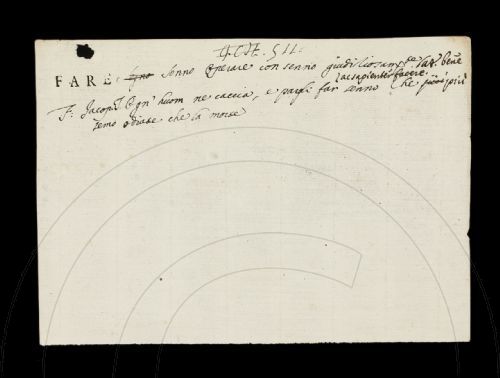 FARE. senno operare con senno giudiliosam.te Lat. bene
ac sapienter facere.
F. Jacop. T. Ogn' huom ne caccia, e parsi far senno Che
temo odiate che la morte